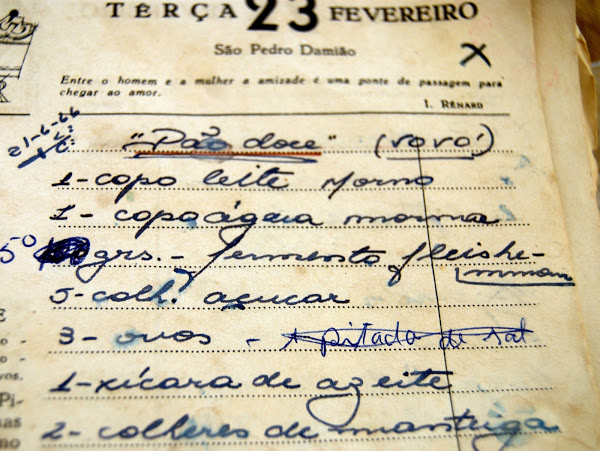 TÊRÇA 23 FEVEREIRO
São Pedro Damião
X
Entre o homem e a mulher a amizade é uma ponte de passagem para
chegar ao amor.
I. RÊNARD
21-6-66
"Pão doce" (vovó)
1- copo leite morno
1- copo água morna
50 grs. - fermento fleishe-
mmam
5- colh. açucar
3- ovos - 1 pitada de sal
1- xícara de azeite
2- colheres de mantega